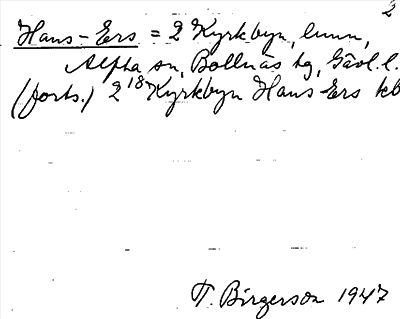 2
Hans-Ers = 2 Kyrkbyn, hmn,
Alfta sn, Bollnäs tg, Gävl. l.
(forts.) 2 18 Kyrkbyn Hans Ers kb
T. Birgerson 1947